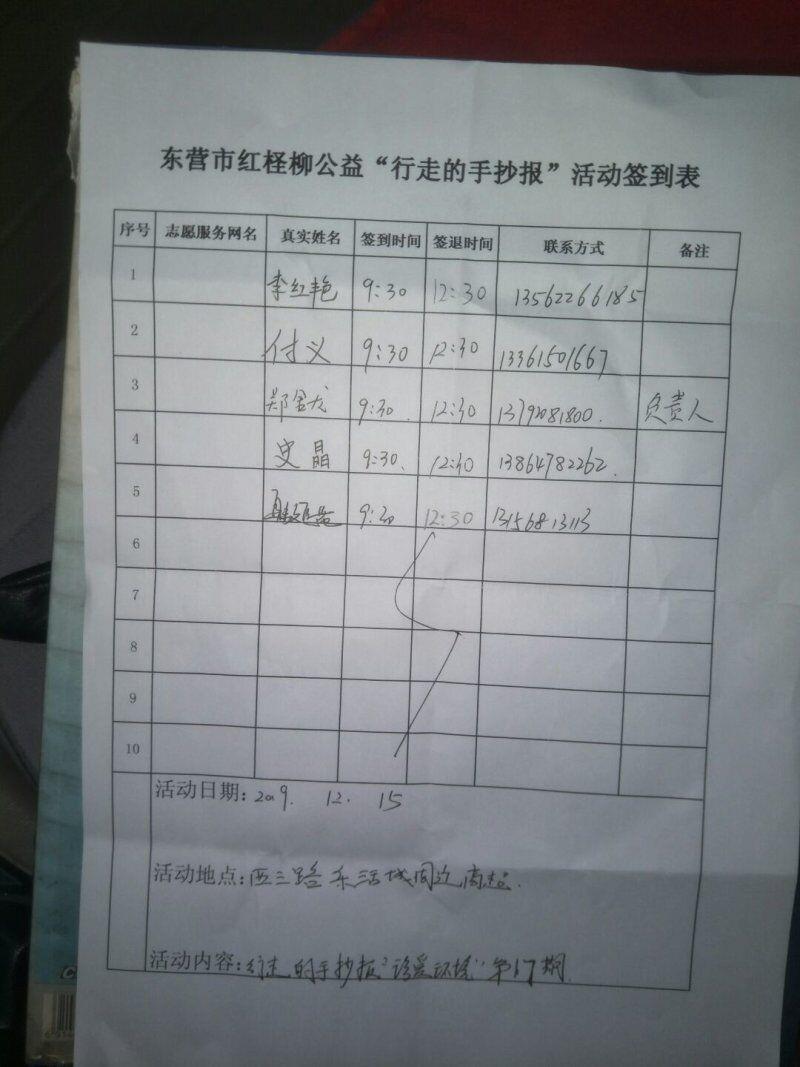 东营市红柽柳公益“行走的手抄报”活动签到表
序号 志愿服务网名 真实姓名 签到时间 签退时间 联系方式 备注
1 李红艳 9:30 12:30 13562266185
2 付义 9:30 12:30 13361501667
3 郑金龙 9:30. 12:30 13792081800. 负责人
4 史晶 9:30. 12:30 13864782262.
5 9:30 12:30 13156813113
6
7
8
9
10
活动日期: 2019. 12. 15
活动地点: 西三路 周边
活动内容: 行走的手抄报“ 爱环境”第17期